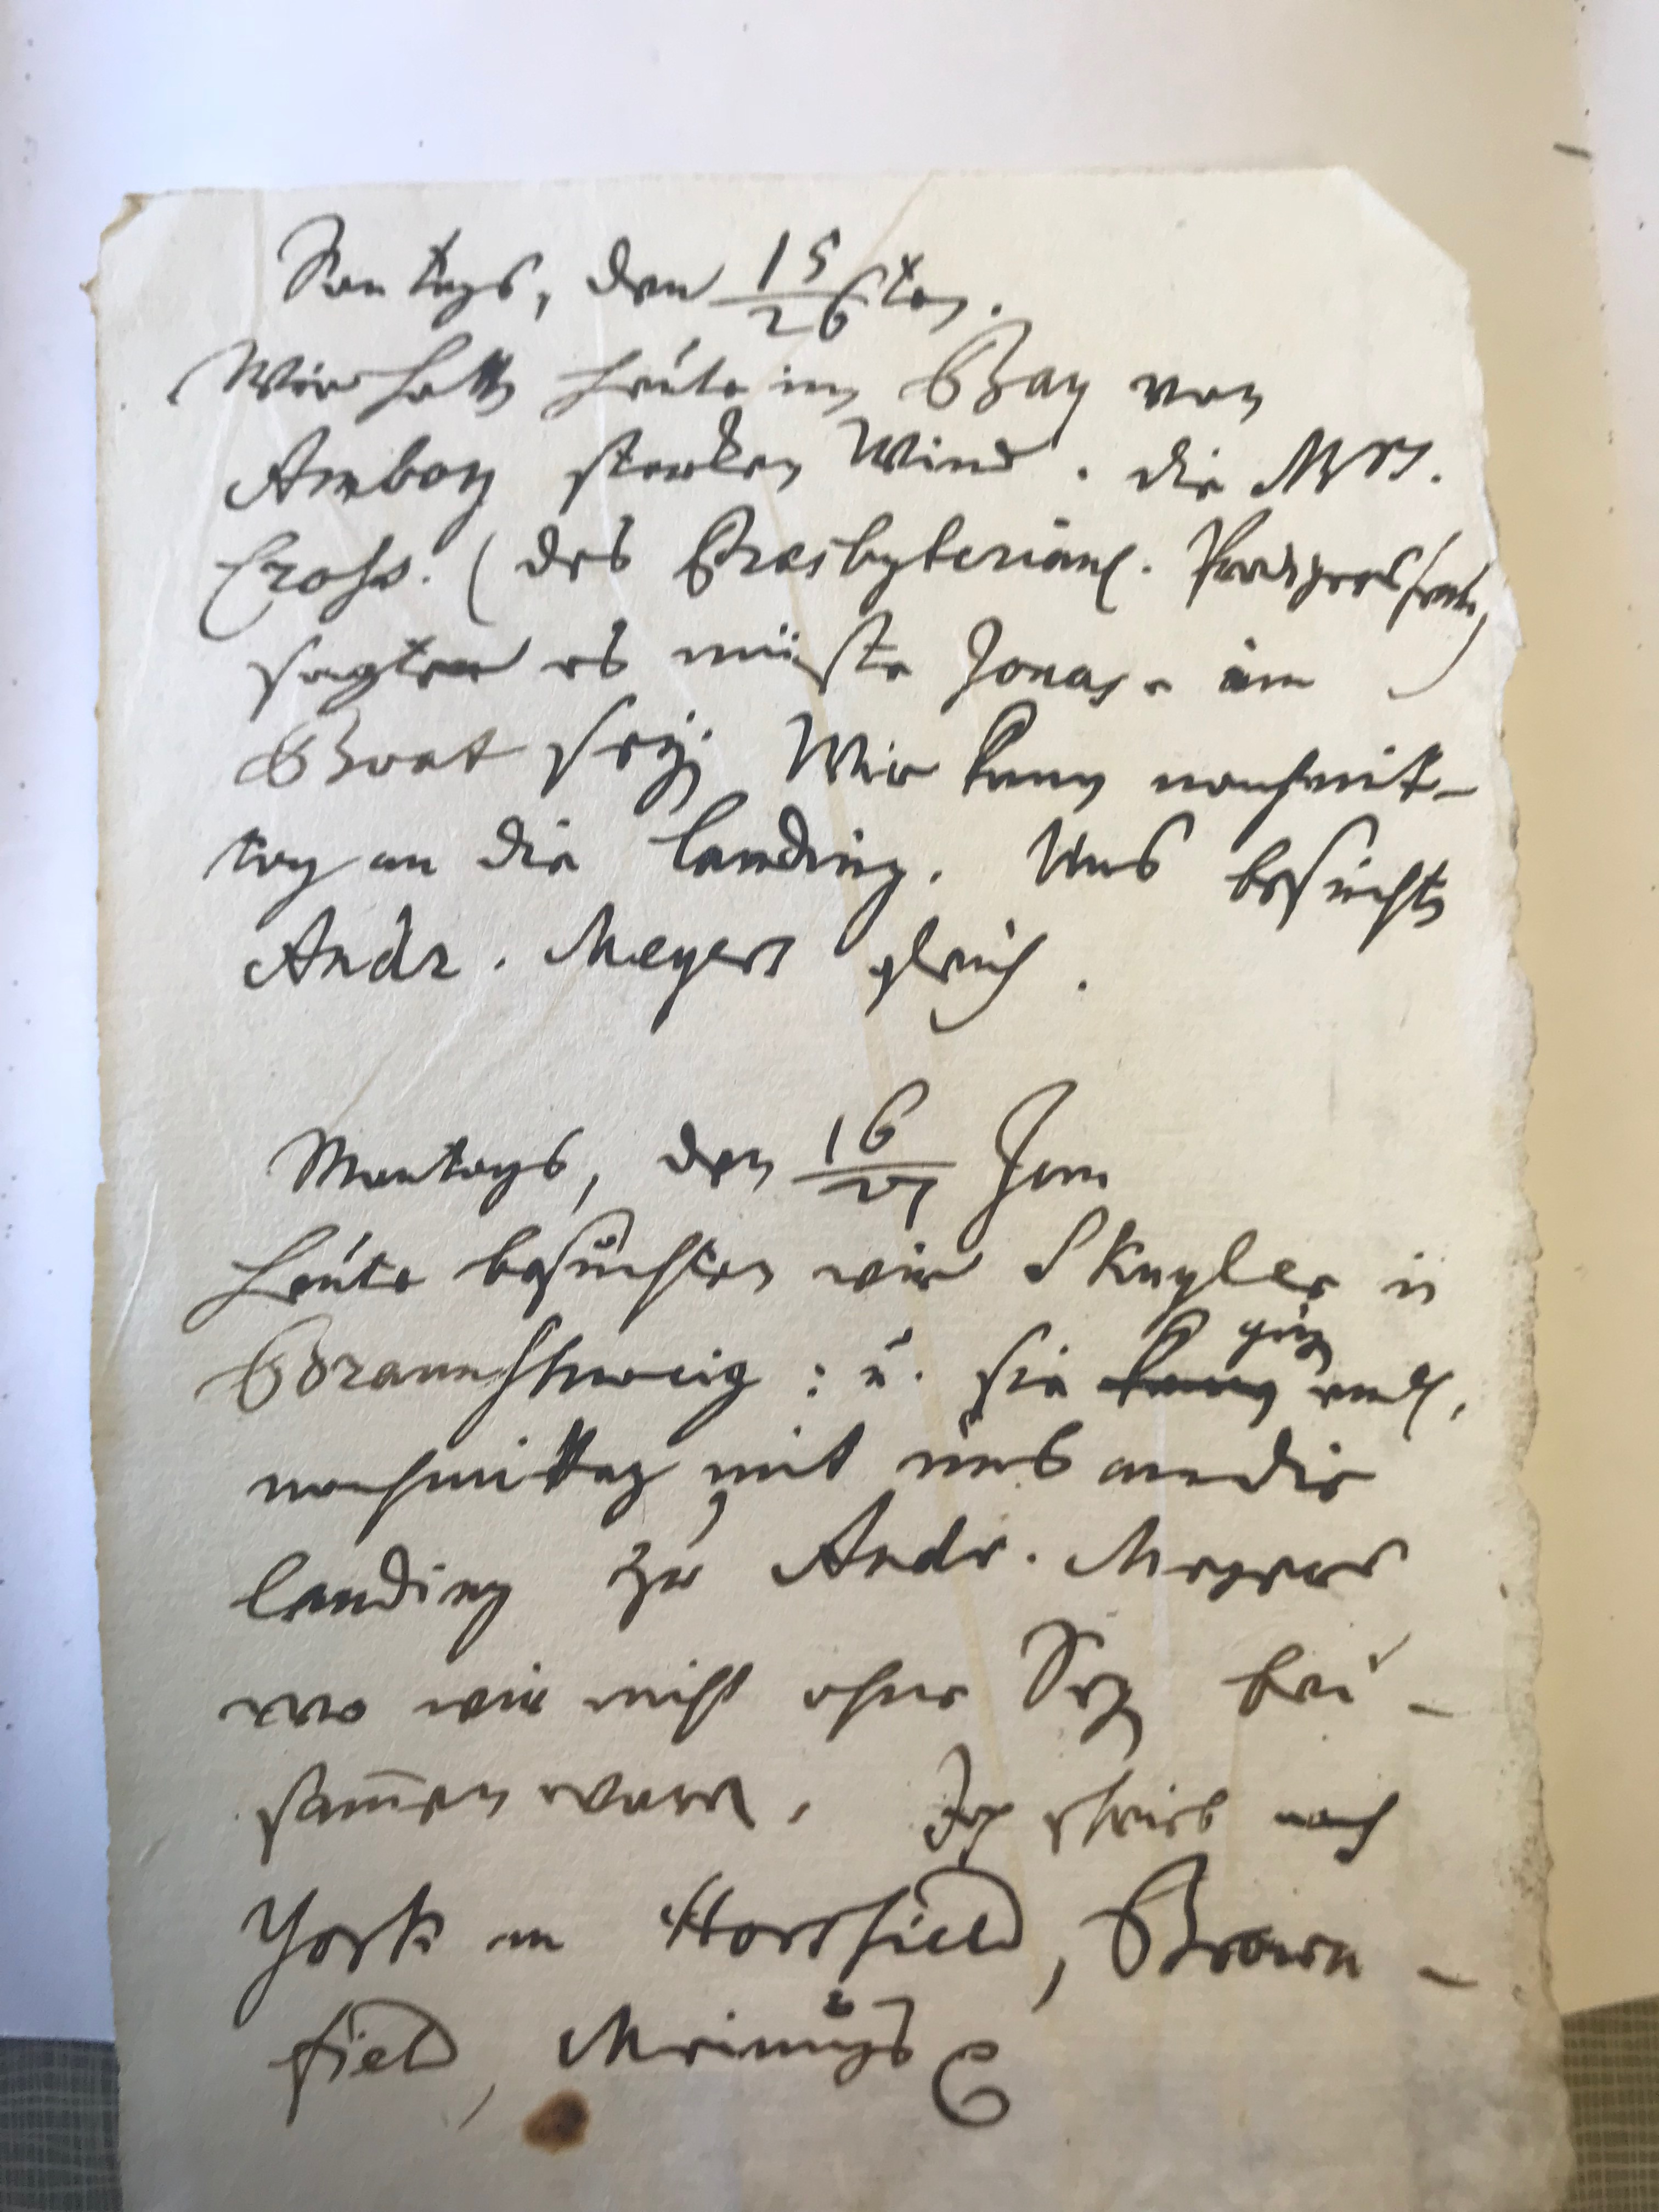 Sontags, den 15/26ten.
Wir hatt heute in Bay von
Amboy starken Wind. die Mrs.
Cross. (des Presbyterian. Predigers frau,)
sagten es müste Jonas im
Boat sey. Wir kamen nachmit-
tag an die landing. Uns besuchte
Andr. Meyers gleich.
Montags, den 16/27 Jun
heute besuchten wir Skuyler in
Braunschweig: u. sie ging
nachmittag mit uns an die
landing zu Andr. Meyers
wo wir nicht ohne Seg bei-
sam̄en waren. Ich schrieb nach
York an Horsfield, Brown-
field,